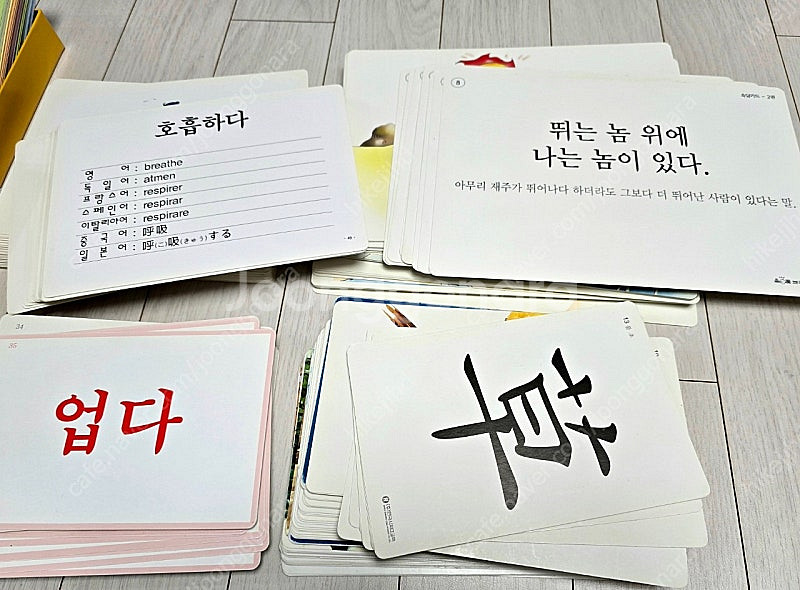 호흡하다
영 어 : breathe
독 일 어 : atmen
프 랑 스 어 : respirer
스 페 인 어 : respirar
이탈리아어 : respirare
중 국 어 : 呼吸
일 본 어 : 呼(こ)吸(きゅう)する
8
속담카드 - 2령
뛰는 놈 위에
나는 놈이 있다.
아무리 재주가 뛰어나다 하더라도 그보다 더 뛰어난 사람이 있다는 말.
34
35
업다
草
Joonggonara